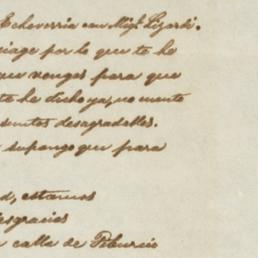 Echeverría con Migl. Lizardi.
viage por lo que te he
que vengas para que
te he dicho ya, no cuento
asuntos desagradables.
supongo que para
estamos
desgracias
calle de Tiburcio